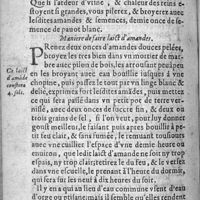 Qui si l'ardeur d'vrine , & chaleur des reins e-
stoyent si grandes, vous pilerez, & broyerez auec
lesdites amandes & semences, demie once de se-
mence de pauot blanc.
Maniere de faire laict d'amandes.
PRenez deux onces d'amandes douces pelées,
broyez les tres bien dans vn mortier de mar-
bre auec pilon de bois, les arrousant peu à peu
en les broyant auec eau bouillie iusques à vne
chopine, puis passez le tout par vn linge blanc &
delié, exprimez fort lesdites amandes, puis mettez
ce qui sera passé dans vn petit pot de terre ver-
nissé, auec vne once de succre fin, & deux ou
trois grains de sel, si l'on veut, pour luy donner
goust meilleur, & faisant puis apres bouillir à pe-
tit feu, clair, & sans fumée, le remuant tousiours
auec vne cuilliere l'espace d'vne demie heure ou
enuiron, que ledit laict d'amande ne soit ny trop
espais, ny trop clair, retirez le du feu, & le versez
dans vne escuelle, le prenant à l'heure du dormir,
qui sera sur les neuf à dix heures du soir.
Il y en a qui au lieu d'eau commune y sont d'eau
d'orge ou ptisane, mais il semble qu'elles rendent
Ce laict
d'amãde
coustera
4. sols.